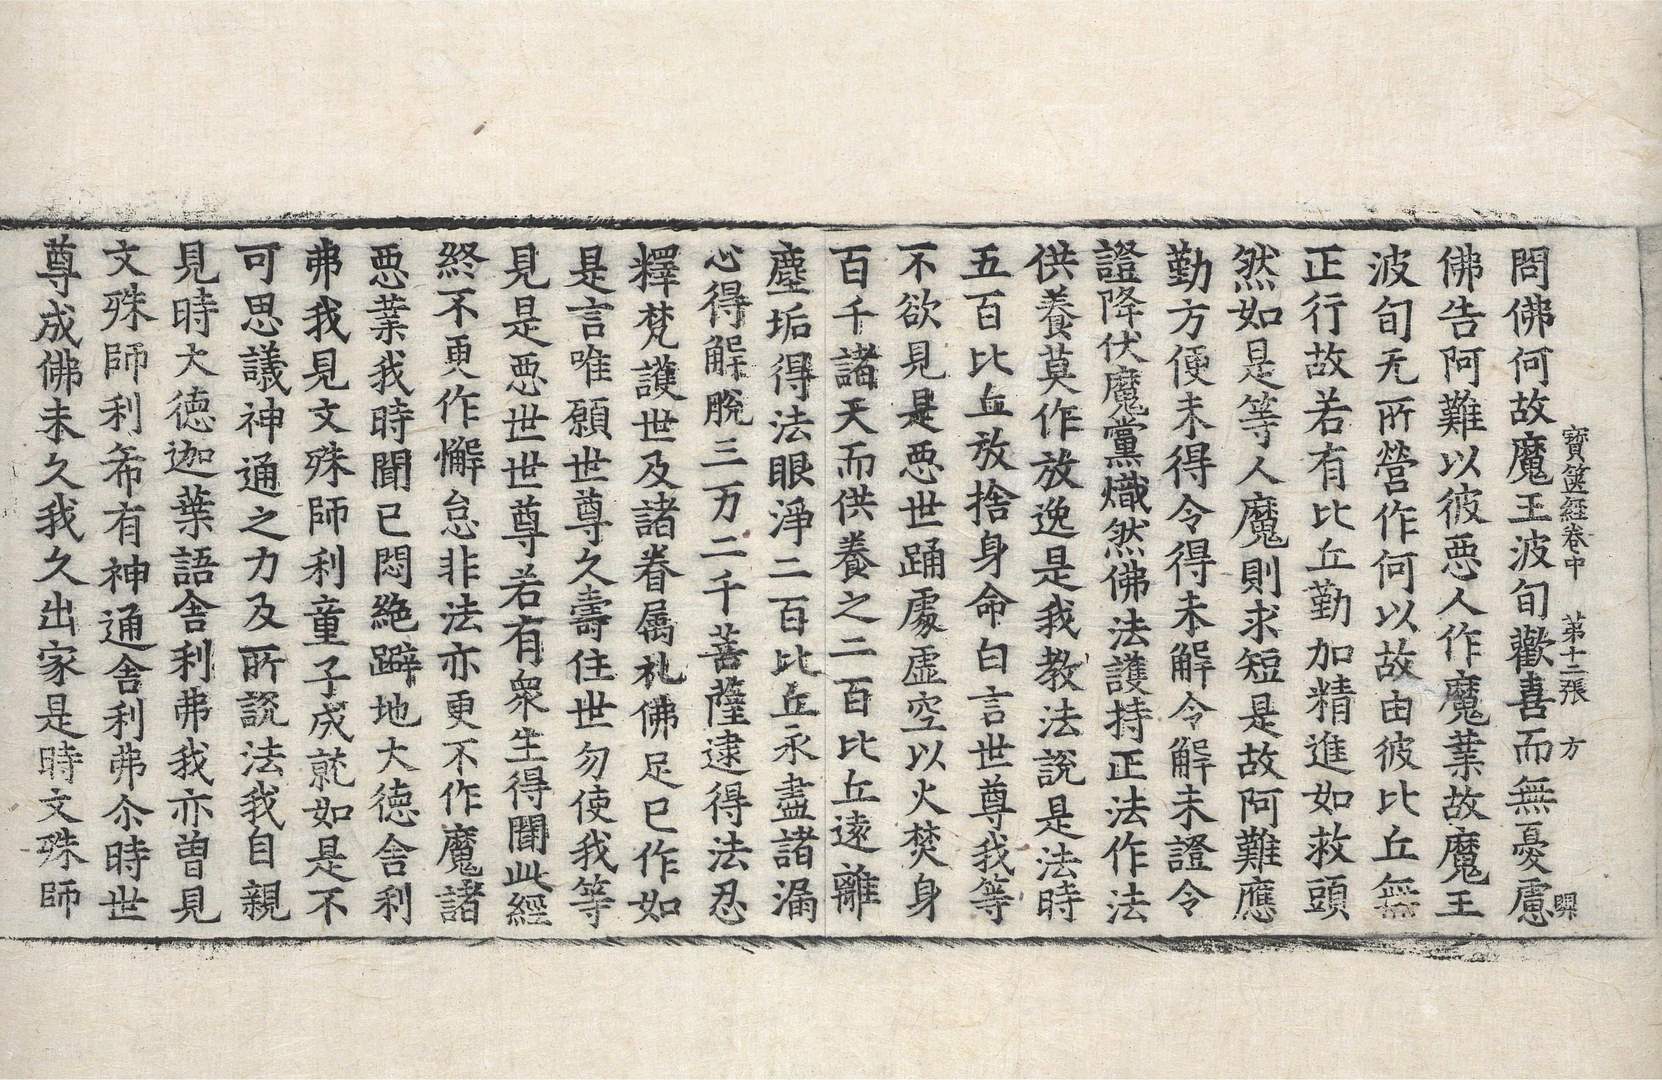 寶篋經卷中　第十二張　方
問佛何故魔王波旬歡喜而無憂慮
佛告阿難以彼惡人作魔業故魔王
波旬无所營作何以故由彼比丘無
正行故若有比丘勤加精進如救頭
然如是等人魔則求短是故阿難應
勤方便未得令得未解令解未證令
證降伏魔黨熾然佛法護持正法作法
供養莫作放逸是我教法說是法時
五百比丘放捨身命白言世尊我等
不欲見是惡世踊處虛空以火焚身
百千諸天而供養之二百比丘遠離
塵垢得法眼淨二百比丘永盡諸漏
心得解脫三万二千菩薩逮得法忍
釋梵護世及諸眷屬礼佛足已作如
是言唯願世尊久壽住世勿使我等
見是惡世世尊若有衆生得聞此經
終不更作懈怠非法亦更不作魔諸
惡業我時聞已悶絶躃地大德舍利
弗我見文殊師利童子成就如是不
可思議神通之力及所說法我自親
見時大德迦葉語舍利弗我亦曾見
文殊師利希有神通舍利弗尒時世
尊成佛未久我久出家是時文殊師